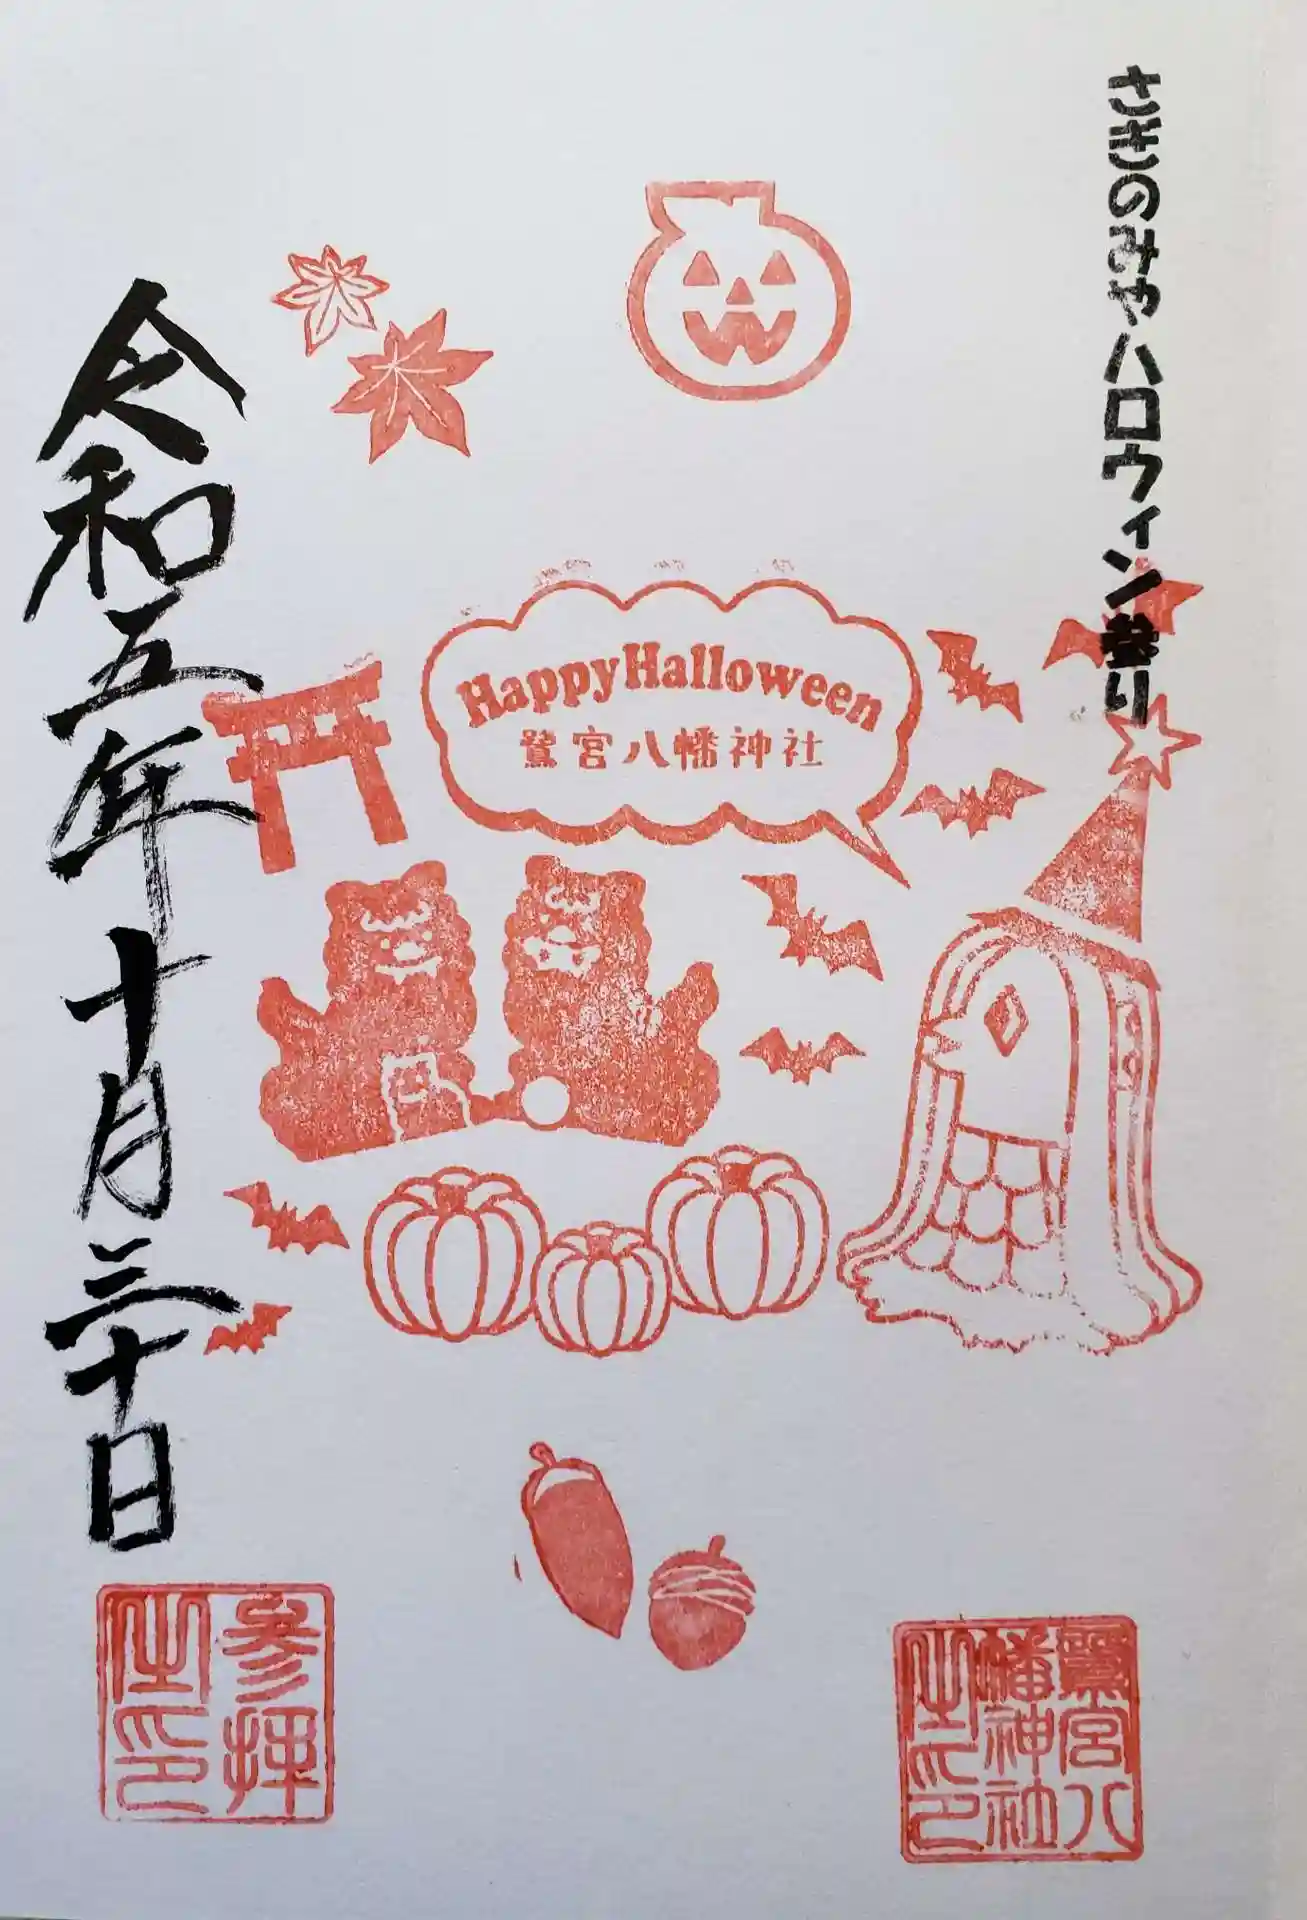 さぎのみやハロウィン参り
HappyHalloween
鷺宮八幡神社
令和五年十月三十日
鷺宮八
幡神社
之印
参拝
之印